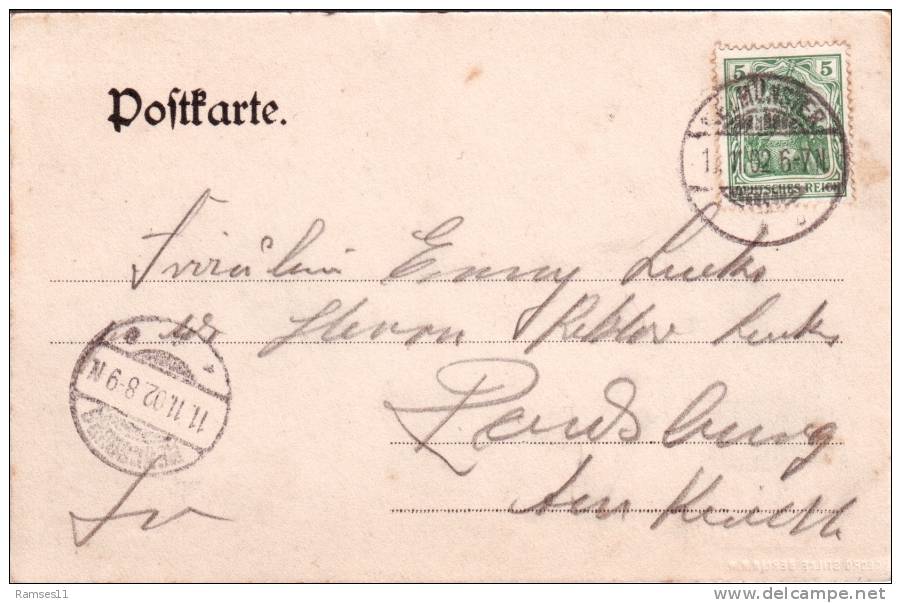 Postkarte.
5 5
MÜNSTER
11.11.02 6-7N
DEUTSCHES REICH
Fräulein Emmy Lucks
Herrn Rektor Lucks
Rendsburg
11.11.02 8-9N
Fr
Ramses11
www.delcampe.net